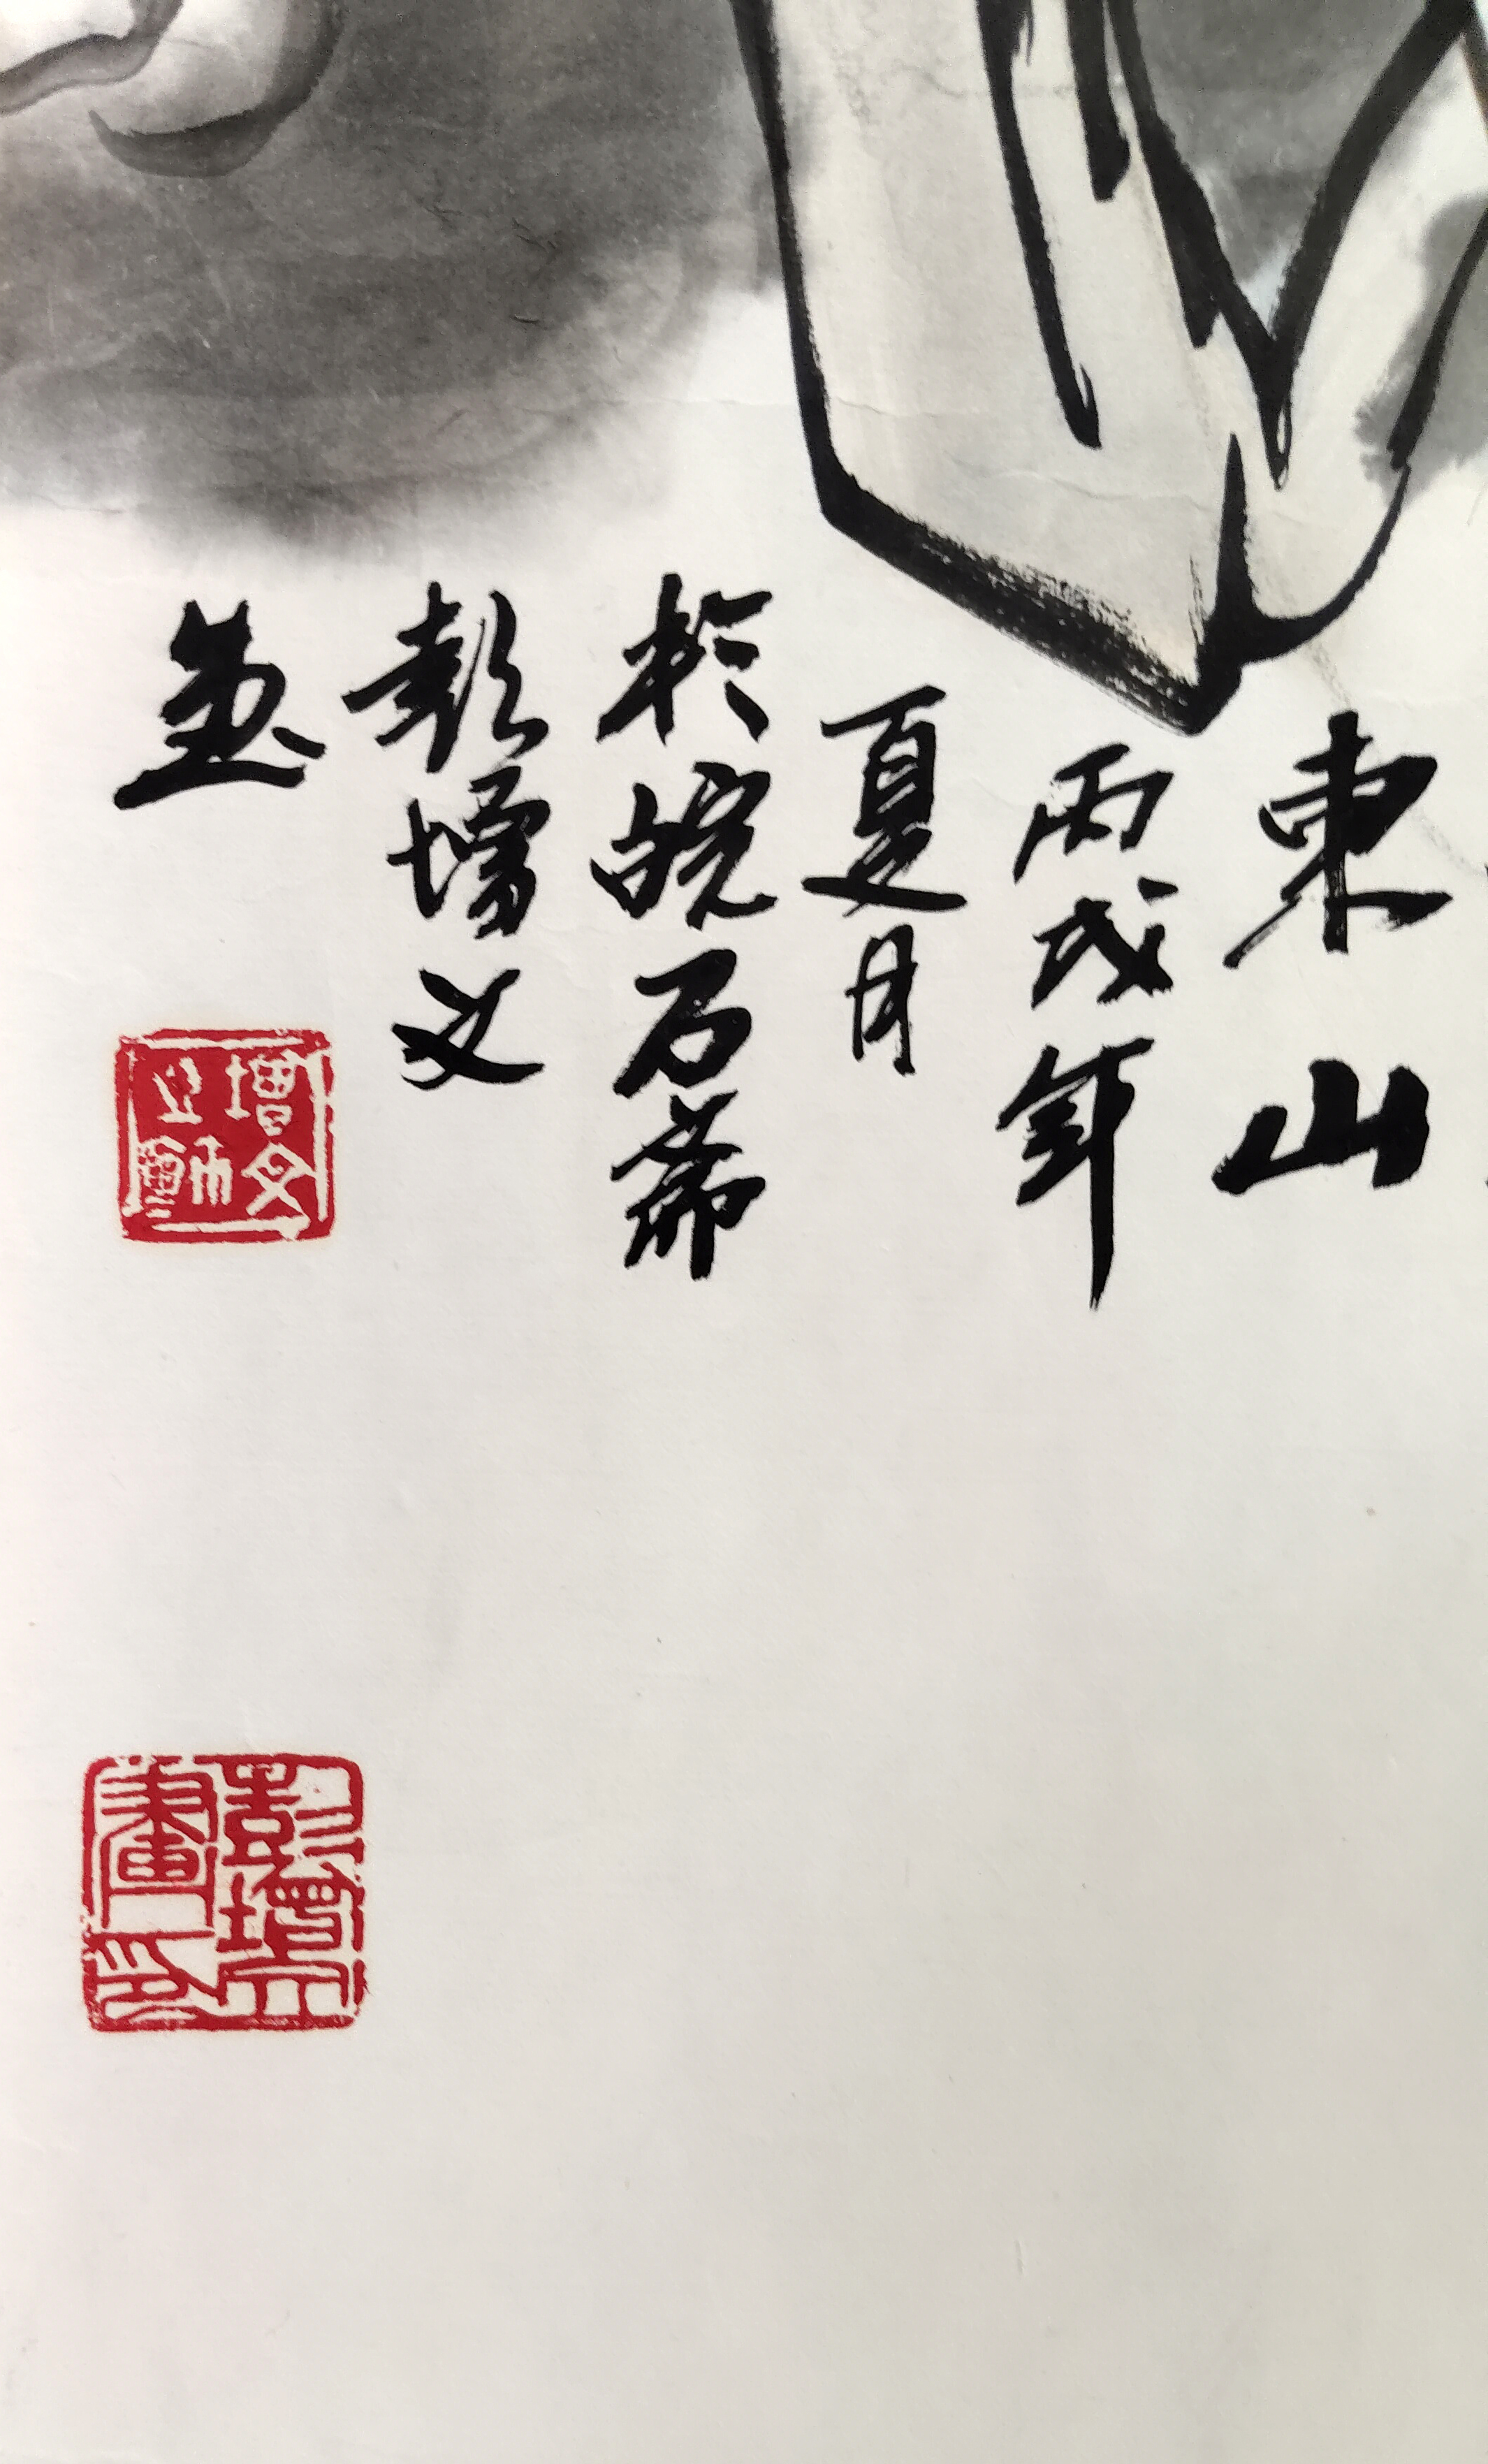 東山
丙戌年
夏月
於皖石齋
彭增文
增文
彭增文
畫印